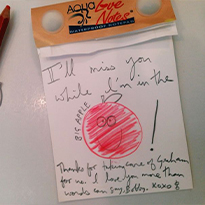 Aqua
Love
Notes
WATERPROOF NOTEPAD
I'll miss you
while I'm in the
BIG APPLE
!
Thanks for taking care of Graham
for me. I love you more than
words can say, Bobby. XOXO